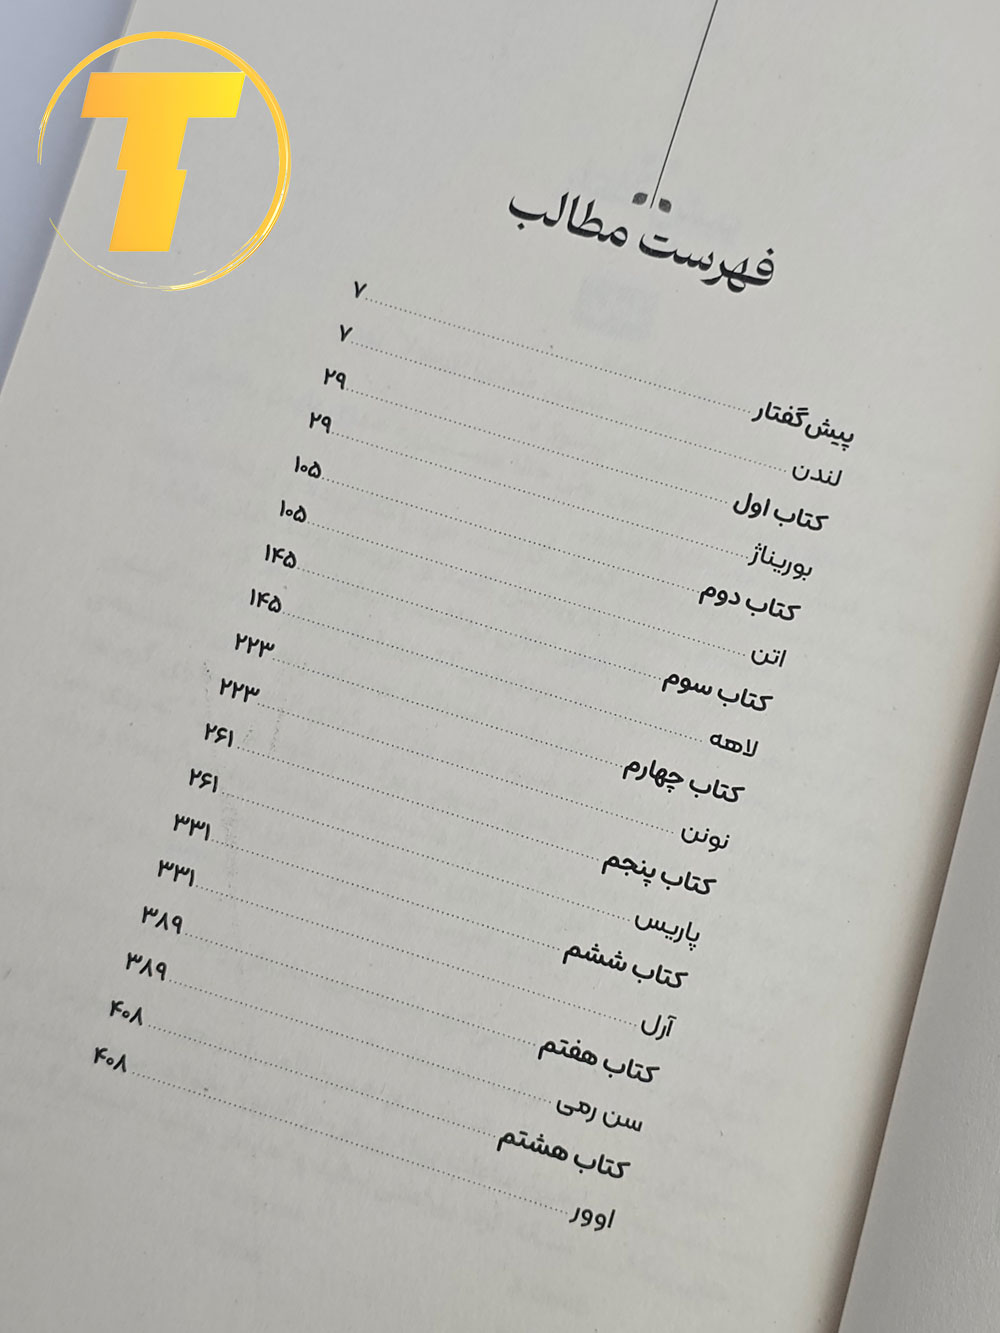 T
فهرست مطالب
پیش‌گفتار ........ ۷
لندن ........ ۷
کتاب اول ........ ۲۹
بوریناژ ........ ۲۹
کتاب دوم ........ ۱۰۵
اتن ........ ۱۰۵
کتاب سوم ........ ۱۴۵
لاهه ........ ۱۴۵
کتاب چهارم ........ ۲۲۳
نونن ........ ۲۲۳
کتاب پنجم ........ ۲۶۱
پاریس ........ ۲۶۱
کتاب ششم ........ ۳۳۱
آرل ........ ۳۳۱
کتاب هفتم ........ ۳۸۹
سن رمی ........ ۳۸۹
کتاب هشتم ........ ۴۰۸
اوور ........ ۴۰۸